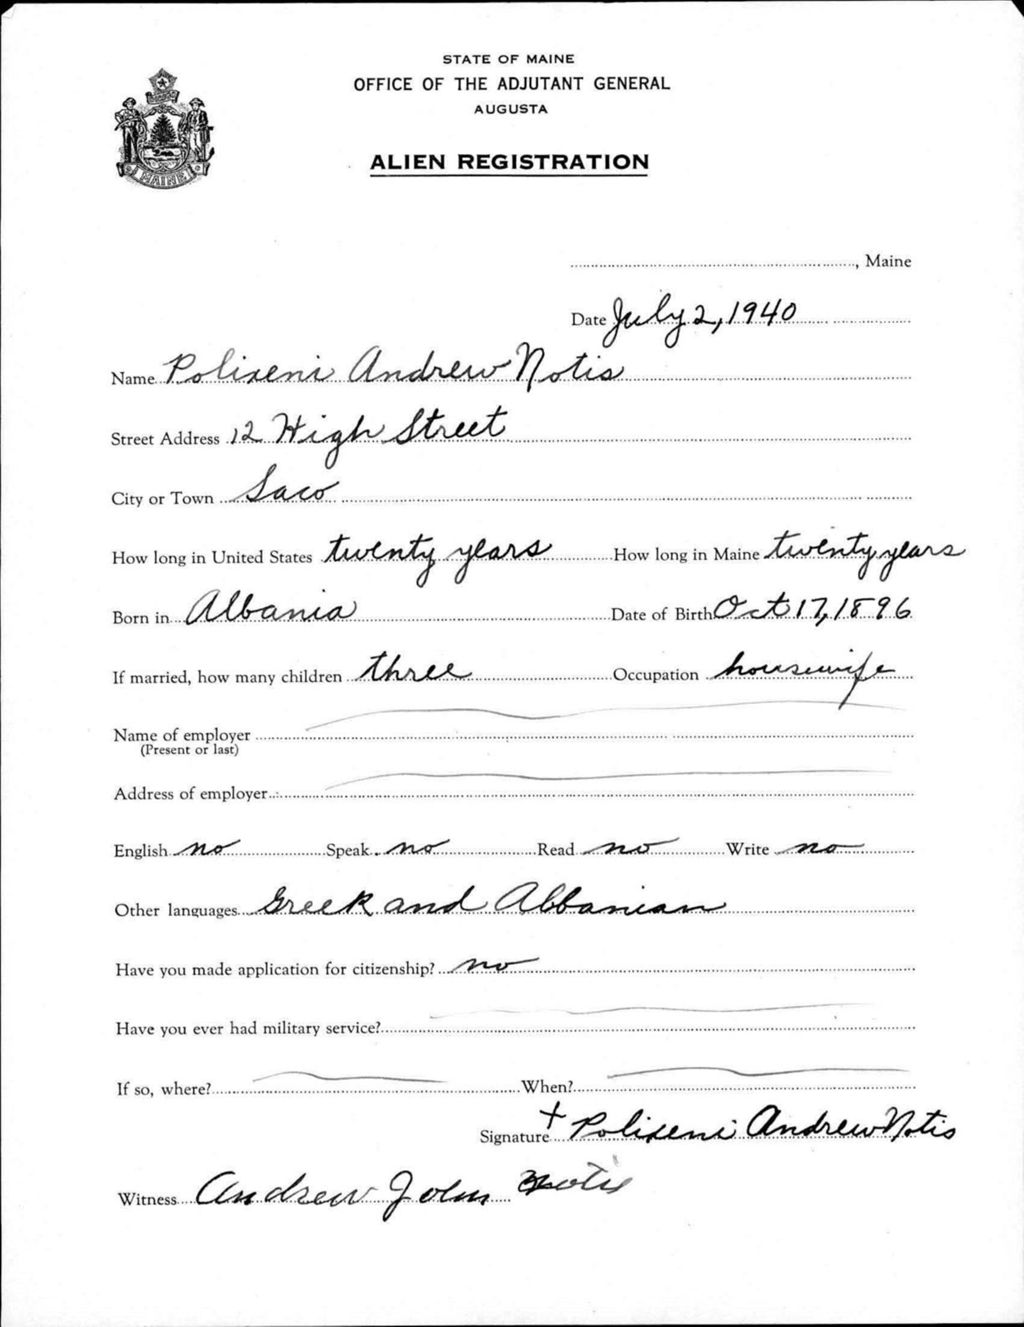 STATE OF MAINE
OFFICE OF THE ADJUTANT GENERAL
AUGUSTA
ALIEN REGISTRATION
MAINE
, Maine
Date July 2, 1940
Name Polixeni Andrew Notis
Street Address 12 High Street
City or Town Saco
How long in United States twenty years How long in Maine twenty years
Born in Albania Date of Birth Oct 17, 1896
If married, how many children three Occupation housewife
Name of employer
(Present or last)
Address of employer
English no Speak no Read no Write no
Other languages Greek and Albanian
Have you made application for citizenship? no
Have you ever had military service?
If so, where? When?
Signature + Polixeni Andrew Notis
Witness Andrew John Notis